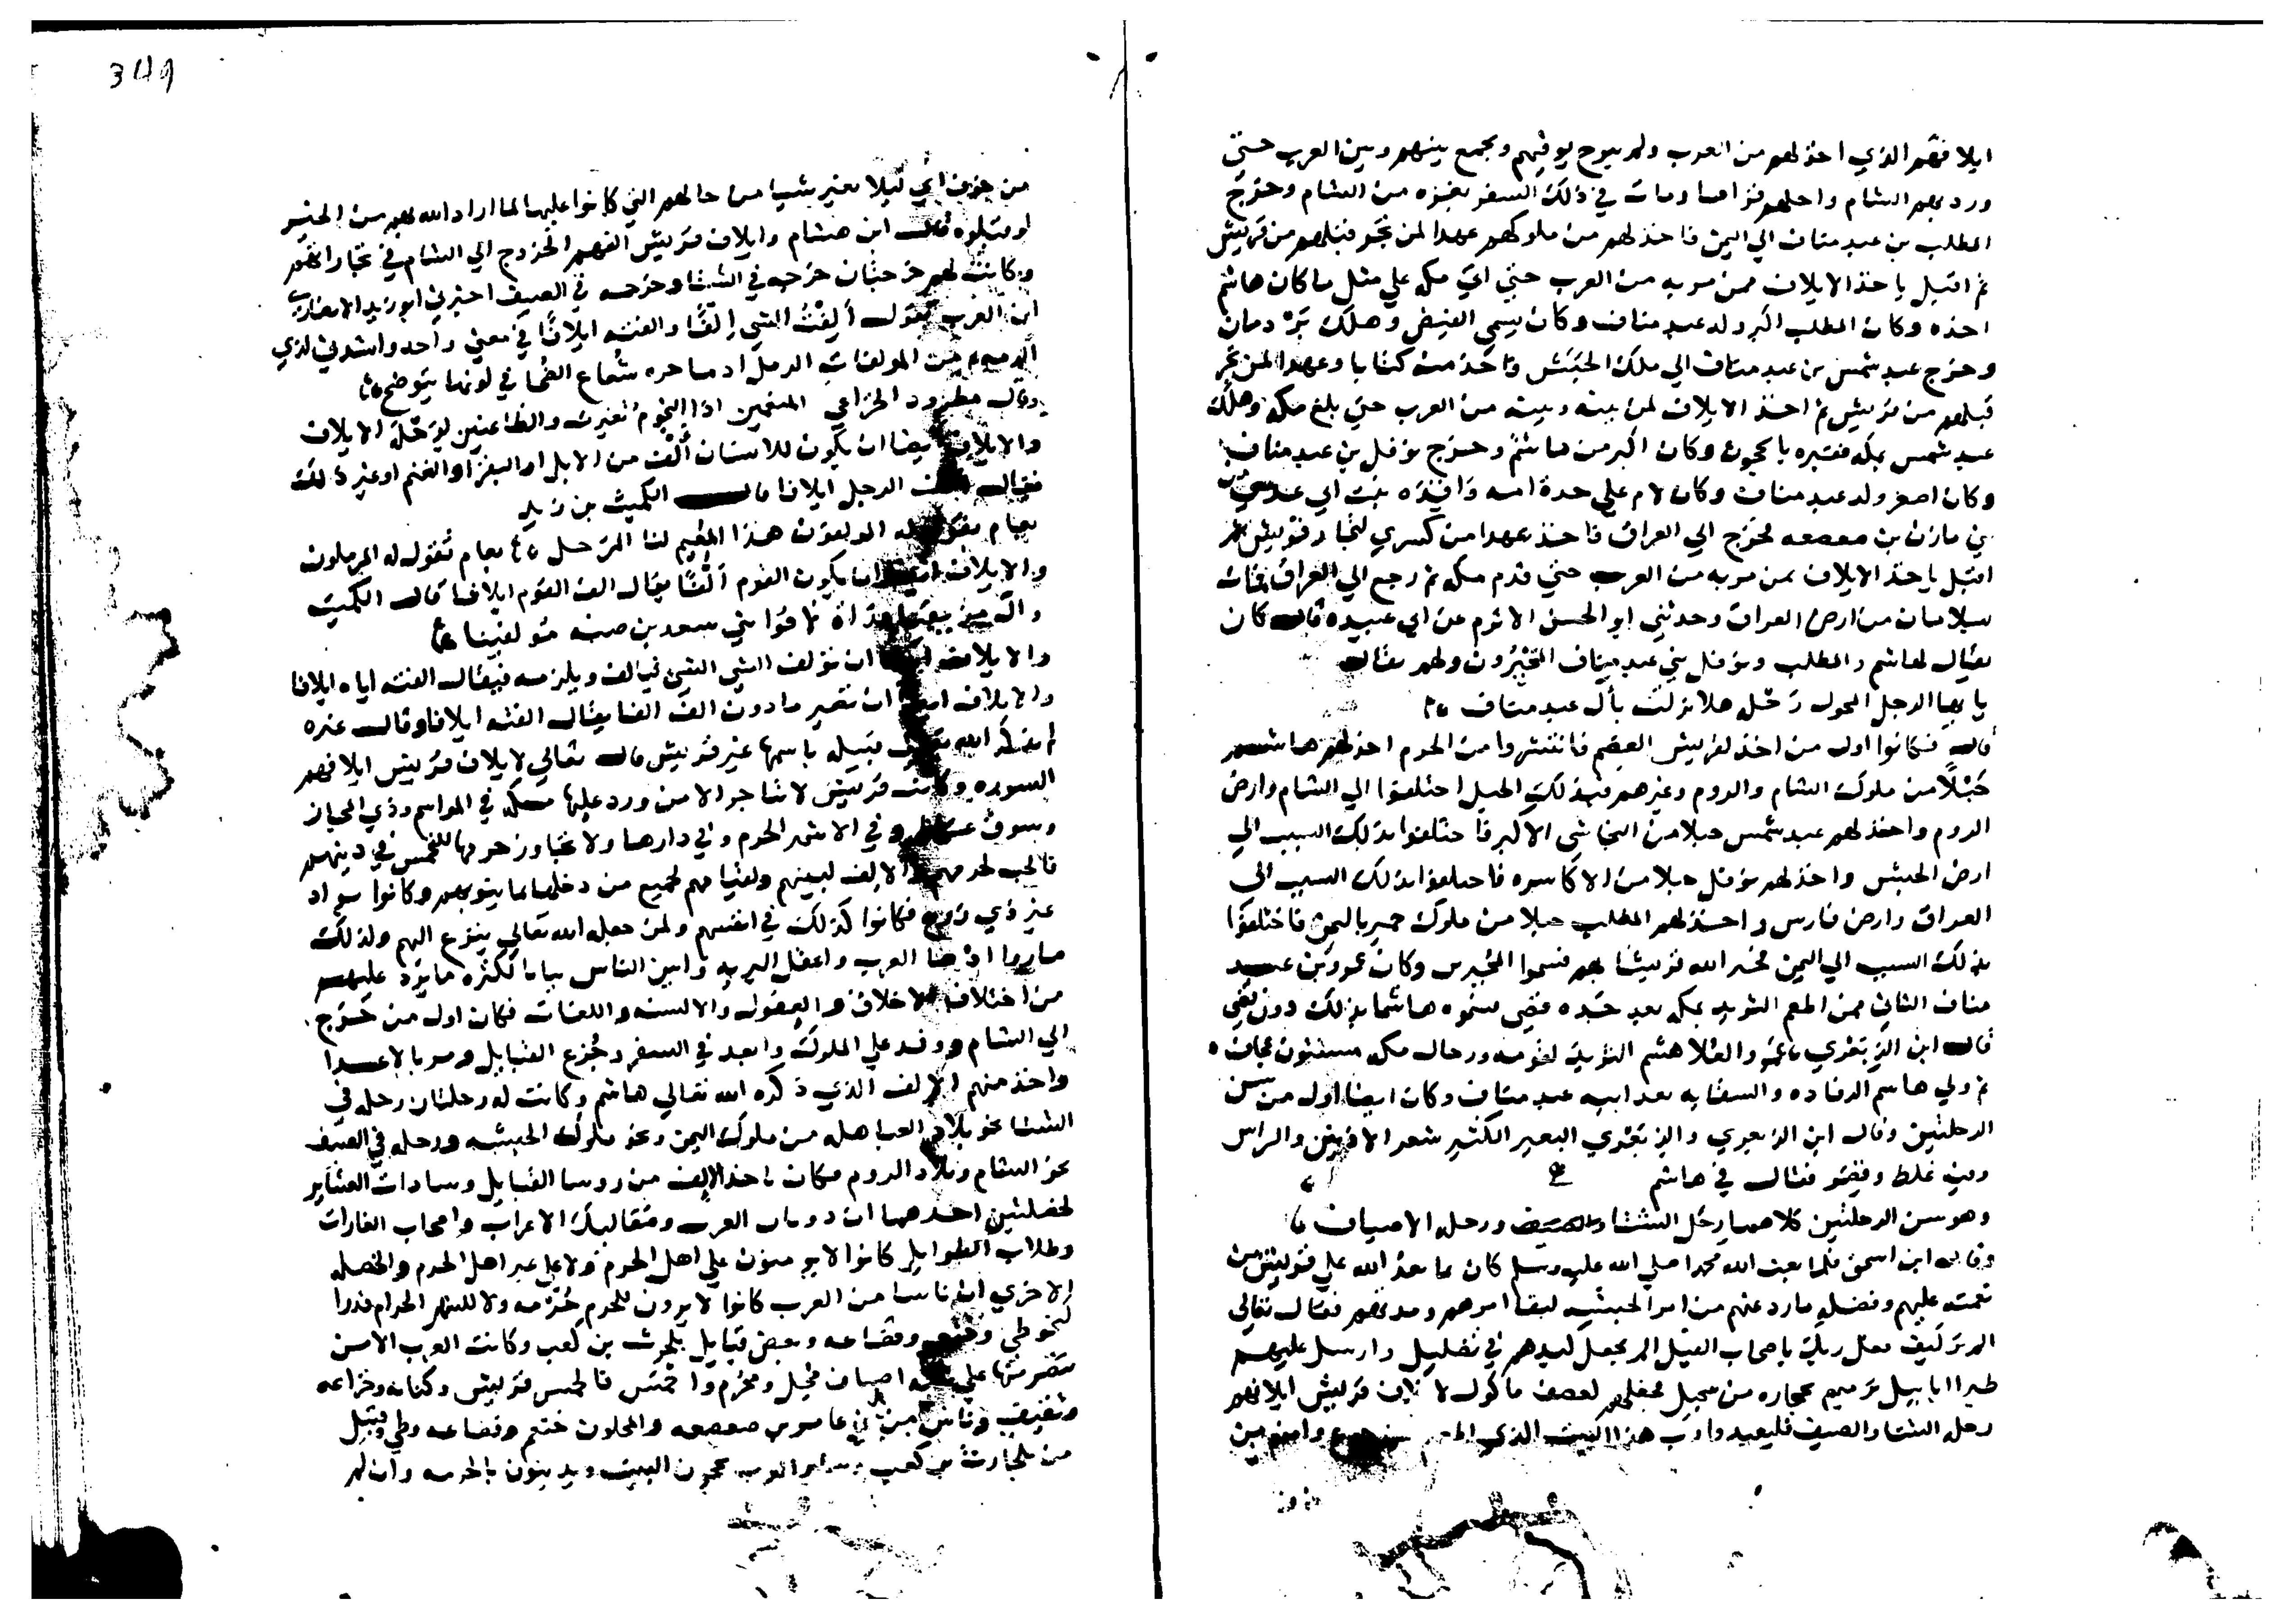 ايلافهم الذي اخذ لهم من العرب ولم يبرح يوفيهم ويجمع بينهم وبين العرب حتي
ورد بهم الشام واحلهم قراها ومات في ذلك السفر بغزه من الشام وخرج
المطلب بن عبد مناف الي اليمن فاخذ لهم من ملوكهم عهدا لمن تجر قبلهم من قريش
ثم اقبل ياخذ الايلاف ممن مر به من العرب حتي اتي مكه علي مثل ما كان هاشم
اخذه وكان المطلب اكبر ولد عبد مناف وكان يسمي الفيض وهلك بردمان
وخرج عبد شمس بن عبد مناف الي ملك الحبش فاخذ منه كتابا وعهدا لمن تجر
قبلهم من قريش ثم اخذ الايلاف لمن بينه وبينه من العرب حتي بلغ مكه وهلك
عبد شمس بمكه فقبره بالحجون وكان اكبر من هاشم وخرج نوفل بن عبد مناف
وكان اصغر ولد عبد مناف وكان لام علي حدة امه واقده بنت ابي عدي
بن مازن بن صعصعه فخرج الي العراق فاخذ عهدا من كسري لتجار قريش ثم
اقبل ياخذ الايلاف بمن مر به من العرب حتي قدم مكه ثم رجع الي العراق فمات
بسلامان من ارض العراق وحدثني ابو الحسن الاثرم عن ابي عبيده قال كان
يقال لهاشم والمطلب ونوفل بني عبد مناف المجبرون ولهم يقال
يا ايها الرجل المحول رحله هلا نزلت بآل عبد مناف
قال فكانوا اول من اخذ لقريش العصم فانتشروا من الحرم اخذ لهم هاشم
حبلا من ملوك الشام والروم وغيرهم فبذلك الحبل اختلفوا الي الشام وارض
الروم واخذ لهم عبد شمس حبلا من النجاشي الاكبر فاختلفوا بذلك السبب الي
ارض الحبش واخذ لهم نوفل حبلا من الاكاسره فاختلفوا بذلك السبب الي
العراق وارض فارس واخذ لهم المطلب حبلا من ملوك حمير باليمن فاختلفوا
بذلك السبب الي اليمن فجبر الله قريشا بهم فسموا المجبرين وكان عمرو بن عبد
مناف الثاني ممن اطعم الثريد بمكه بعد جده قصي سموه هاشما بذلك دون قصي
قال ابن الزبعري عمرو العلا هشم الثريد لقومه ورجال مكه مسنتون عجاف
ثم ولي هاشم الرفاده والسقايه بعد ابيه عبد مناف وكان ايضا اول من سن
الرحلتين وقال ابن الزبعري والزبعري البعير الكثير شعر الاذنين والراس
وفيه غلظ وقصر فقال في هاشم
وهو سن الرحلتين كلاهما رحل الشتا والصيف ورحله الاصياف
وقال ابن اسحق فلما بعث الله محمدا صلي الله عليه وسلم كان مما يعد الله علي قريش من
نعمته عليهم وفضله ما رد عنهم من امر الحبشه لبقا امرهم ومدتهم فقال تعالي
الم تر كيف فعل ربك باصحاب الفيل الم يجعل كيدهم في تضليل وارسل عليهم
طيرا ابابيل ترميهم بحجاره من سجيل فجعلهم كعصف ماكول لايلاف قريش ايلافهم
رحله الشتا والصيف فليعبدوا رب هذا البيت الذي جوع وامنهم من
349
من خوف اي ليلا يغير شيا من حالهم التي كانوا عليها لما اراد الله بهم من الخير
لو قبلوه قال ابن هشام وايلاف قريش الفهم الخروج الي الشام في تجارتهم
وكانت لهم خرجتان خرجه في الشتا وخرجه في الصيف اخبرني ابو زيد الانصاري
ان العرب تقول ألفت الشي إلفا والفته ايلافا في معني واحد وانشدني لذي
الرمه من المولفات الرمل ادما حره شعاع الضحا في لونها يتوضح
وقال مطرود الخزاعي المنعمين اذا النجوم تغيرت والظاعنين لرحلة الايلاف
والايلاف ايضا ان يكون للانسان ألف من الابل او البقر او الغنم او غير ذلك
فيقال الف الرجل ايلافا قال الكميت بن زيد
بعام يقول له المولفون هذا المقيم لنا المرجل بعام تقول له المرملون
والايلاف ايضا ان يكون القوم ألفا يقال الف القوم ايلافا قال الكميت
وال مزيقيا غداة لاقوا بني سعد بن ضبه مولفينا
والايلاف ايضا ان يؤلف الشي الشي فيالفه ويلزمه فيقال الفته اياه ايلافا
والايلاف ايضا ان تصير ما دون الف الفا يقال الفته ايلافا وقال غيره
لم يذكر الله قبيله باسمها غير قريش قال تعالي لايلاف قريش ايلافهم
السوره وكانت قريش لا تتاجر الا من ورد عليها مكه في المواسم وذي المجاز
وسوق عكاظ وفي الاشهر الحرم وفي دارها ولا تجاوز حرمها للتحمس في دينهم
والحب لحرمهم والالف لبيتهم ولقيامهم لجميع من دخلها بما ينوبهم وكانوا بواد
غير ذي زرع فكانوا كذلك في انفسهم ولمن جعله الله تعالي ينزع اليهم ولذلك
صاروا العرب واعقل البريه وابين الناس بيانا لكثره ما يرد عليهم
من اختلاف الاخلاق والعقول والالسنه واللغات فكان اول من خرج
الي الشام ووفد علي الملوك وابعد في السفر القبايل ومر بالاعدا
واخذ منهم الالف الذي ذكره الله تعالي هاشم وكانت له رحلتان رحله في
الشتا نحو بلاد العباهله من ملوك اليمن ونحو ملوك الحبشه ورحله في الصيف
نحو الشام وبلاد الروم فكان ياخذ الالف من روسا القبايل وسادات العشاير
لخصلتين احدهما ان ذوبان العرب وصعاليك الاعراب واصحاب الغارات
وطلاب الطوايل كانوا لا يومنون علي اهل الحرم ولا علي غير اهل الحرم والخصله
الاخري ان اناسا من العرب كانوا لا يرون للحرم حرمه ولا للشهر الحرام قدرا
كنحو طي وخثعم وقضاعه وبعض قبايل بلحرث بن كعب وكانت العرب الامن
علي اصناف محل ومحرم واحمس فالحمس قريش وكنانه وخزاعه
وثقيف وناس من بني عامر بن صعصعه والمحلون خثعم وقضاعه وطي وقبل
من بلحارث بن كعب وساير العرب يحجون البيت ويدينون بالحرمه وان لم